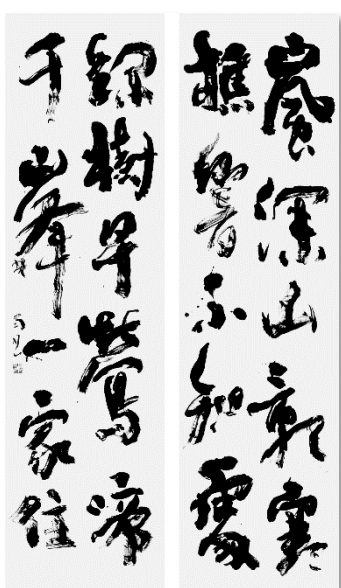 嵐深山郭寒
樵響不知處
樹早鶯啼
千峯一家住